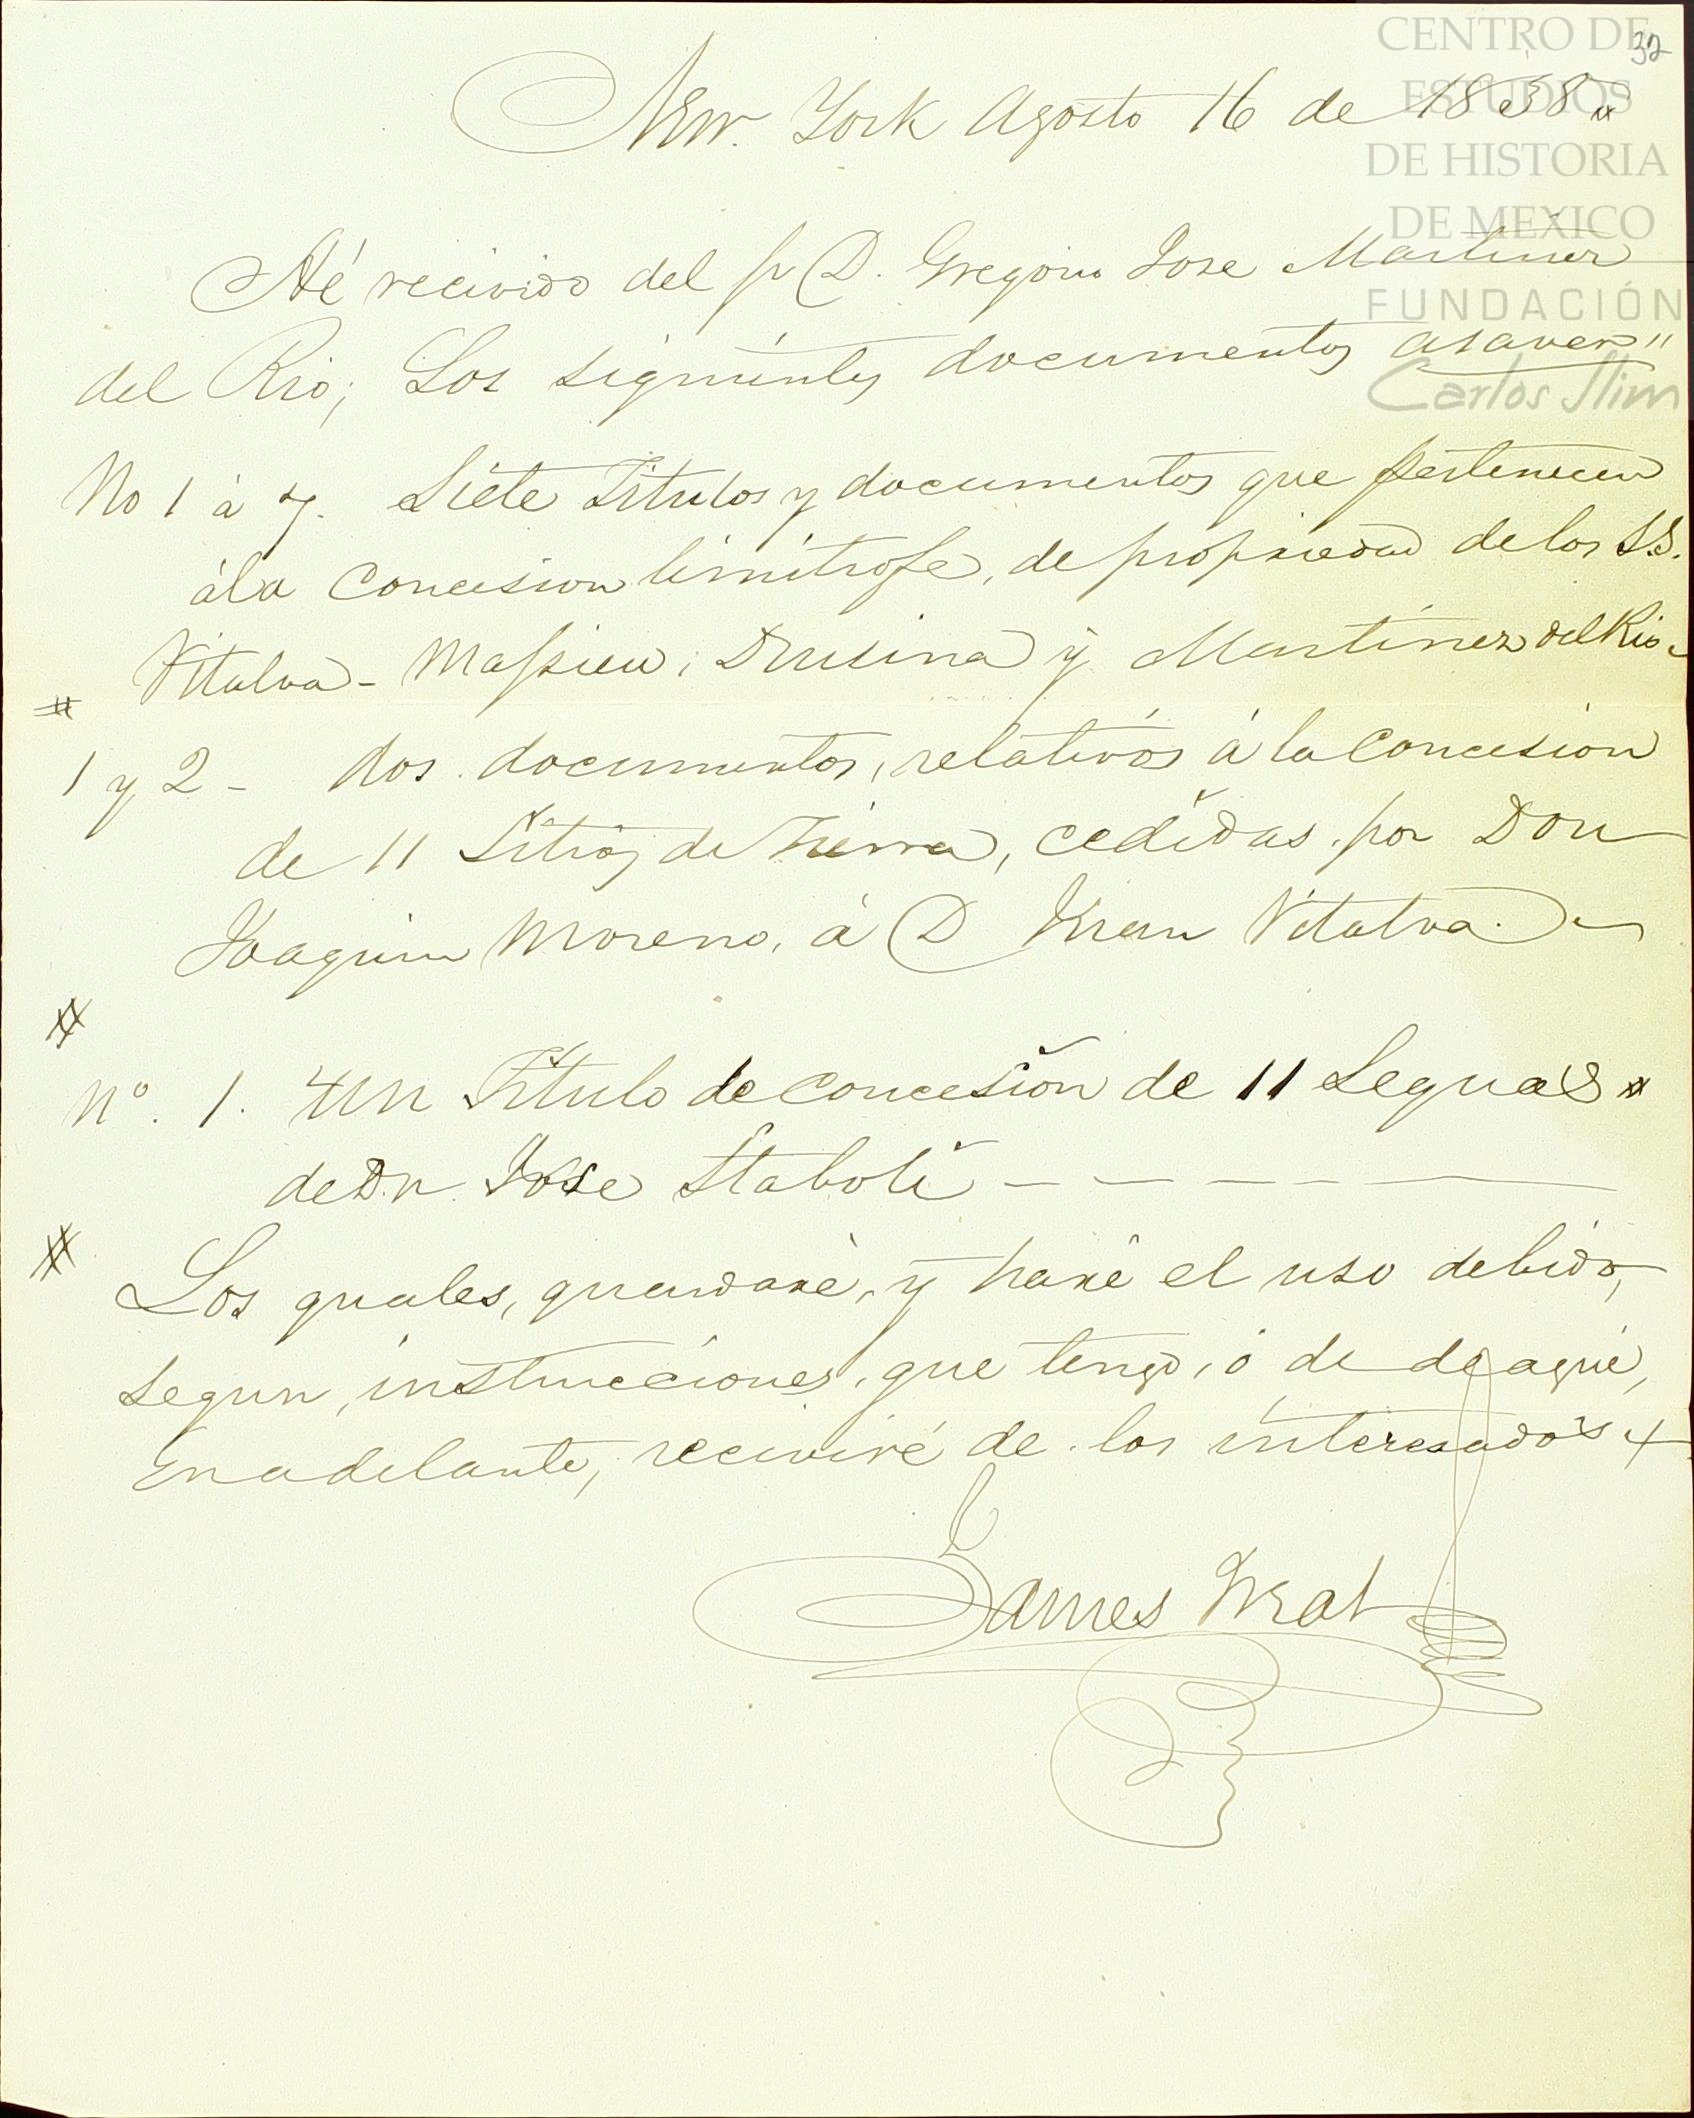 CENTRO DE
ESTUDIOS
DE HISTORIA
DE MÉXICO
FUNDACIÓN
Carlos Slim
32
New. York Agosto 16 de 1838
Hé recivido del Sr D. Gregorio Jose Martinez
del Rio; Los siguientes documentos asaver"
No 1 á 7. Siete Titulos y documentos que pertenecen
ála Concesion limitrofe, de propriedad de los S.S.
Vitalva - Massieu, Drusina y Martinez del Rio
#
1 y 2 - dos documentos, relativos á la Concesion
de 11 Sitios de tierra, cedidas por Don
Joaquin Moreno, á D Juan Vitalva.
#
Nº. 1. Un Titulo de concesion de 11 Leguas
de Dn Jose Staboli
#
Los quales, guardaré, y haré el uso debido,
segun, instrucciones, que tengo, ó de de aqui,
en adelante, reciviré de los interesados
James